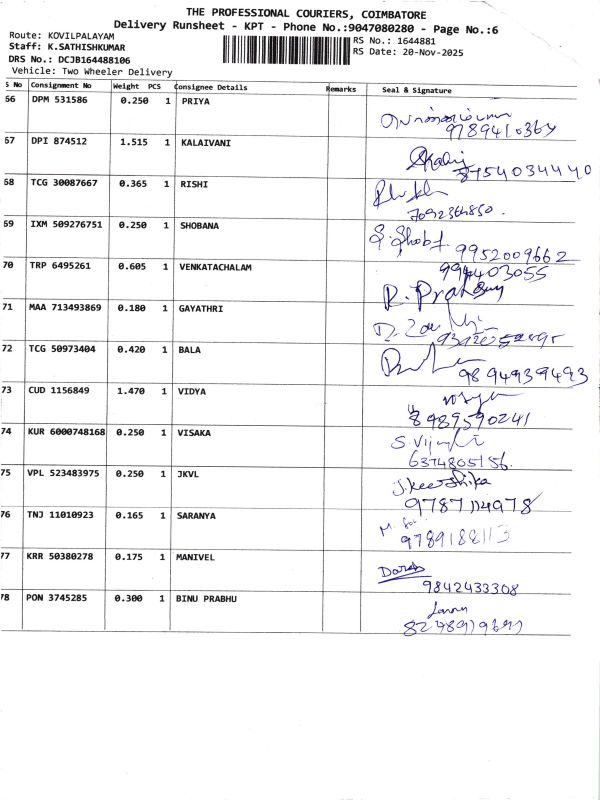 THE PROFESSIONAL COURIERS, COIMBATORE
Delivery Runsheet - KPT - Phone No.:9047080280 - Page No.:6
Route: KOVILPALAYAM
Staff: K.SATHISHKUMAR
DRS No.: DCJB164488106
Vehicle: Two Wheeler Delivery
RS No.: 1644881
RS Date: 20-Nov-2025
S No Consignment No Weight PCS Consignee Details Remarks Seal & Signature
66 DPM 531586 0.250 1 PRIYA
9789410364
67 DPI 874512 1.515 1 KALAIVANI
8754034440
68 TCG 30087667 0.365 1 RISHI
7092364850.
69 IXM 509276751 0.250 1 SHOBANA
9952009662
70 TRP 6495261 0.605 1 VENKATACHALAM
994403055
71 MAA 713493869 0.180 1 GAYATHRI
72 TCG 50973404 0.420 1 BALA
9894939493
73 CUD 1156849 1.470 1 VIDYA
8989590241
74 KUR 6000748168 0.250 1 VISAKA
6374805156.
75 VPL 523483975 0.250 1 JKVL
J.Keerthika
9787114978
76 TNJ 11010923 0.165 1 SARANYA
9789188113
77 KRR 50380278 0.175 1 MANIVEL
9842433308
78 PON 3745285 0.300 1 BINU PRABHU